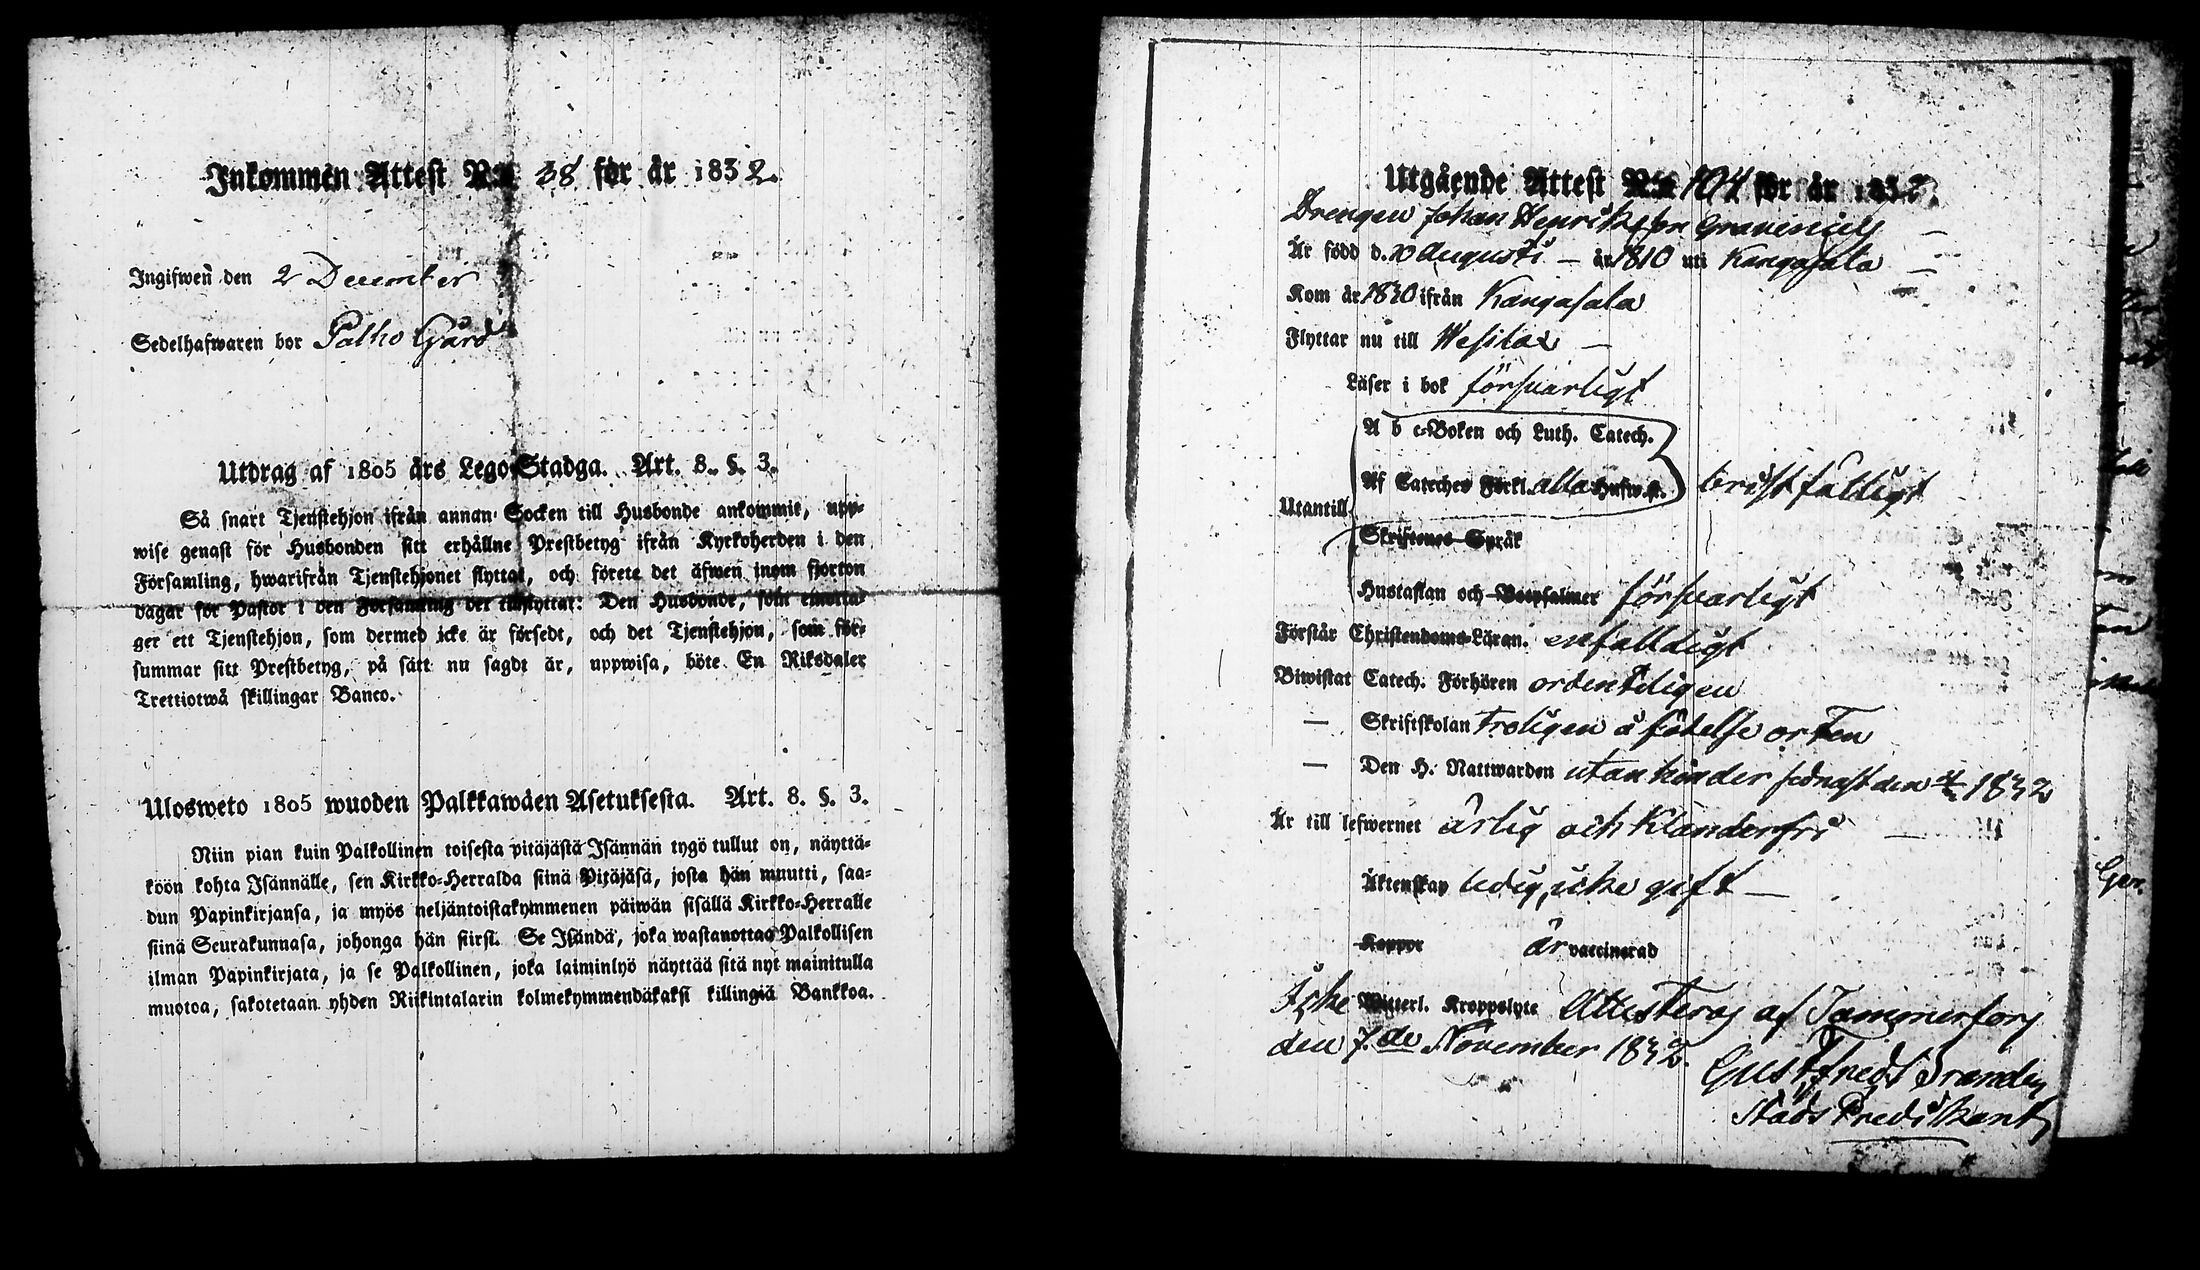 Inkommen Attest N:o 38 för år 1832.
Ingifwen den 2 December
Sedelhafwaren bor Palho Gård
Utdrag af 1805 års Lego-Stadga. Art. 8. §. 3.
Så snart Tjenstehjon ifrån annan Socken till Husbonde ankommit, upp-
wise genast för Husbonden sitt erhållne Prestbetyg ifrån Kyrkoherden i den
Församling, hwarifrån Tjenstehjonet flyttat, och förete det äfwen inom fjorton
dagar för Pastor i den Församling det tillflyttat: Den Husbonde, som emotta-
ger ett Tjenstehjon, som dermed icke är försedt, och det Tjenstehjon, som för-
summar sitt Prestbetyg, på sätt nu sagdt är, uppwisa, böte En Riksdaler
Trettiotwå skillingar Banco.
Ulosweto 1805 wuoden Palkkawäen Asetuksesta. Art. 8. §. 3.
Niin pian kuin Palkollinen toisesta pitäjästä Isännän tygö tullut on, näyttä-
köön kohta Isännälle, sen Kirkko-Herralda siinä Pitäjäsä, josta hän muutti, saa-
dun Papinkirjansa, ja myös neljäntoistakymmenen päiwän sisällä Kirkko-Herralle
siinä Seurakunnasa, johonga hän siirsi. Se Isändä, joka wastanottaa Palkollisen
ilman Papinkirjata, ja se Palkollinen, joka laiminlyö näyttää sitä nyt mainitulla
muotoa, sakotetaan yhden Riikintalarin kolmekymmendäkaksi killingiä Bankkoa.
Utgående Attest N:o 104 för år 1832.
Drengen Johan Henriksson Gravenius
Är född d. 20 Augusti — år 1810 uti Kangasala —
Kom år 1830 ifrån Kangasala
Flyttar nu till Wesilax —
Läser i bok försvarligt
A b c-Boken och Luth. Catech.
Af Cateches Förkl. alla Hufw.st. bristfälligt
Utantill
Skriftenes Språk
Hustaflan och Botpsalmer försvarligt
Förstår Christendoms-Läran. enfalldigt
Biwistat Catech. Förhören ordenteligen
— Skriftskolan troligen å födelse orten
— Den H. Nattwarden utan hinder sednast den 1832
Är till lefwernet ärlig och klanderfri —
Äktenskap ledig, icke gift —
Koppor är vaccinerad
Icke Witterl. Kroppslyte Attesteras af Tammerfors
den 7.de November 1832.
Gust. Fredr. Brander
Stads Predikant